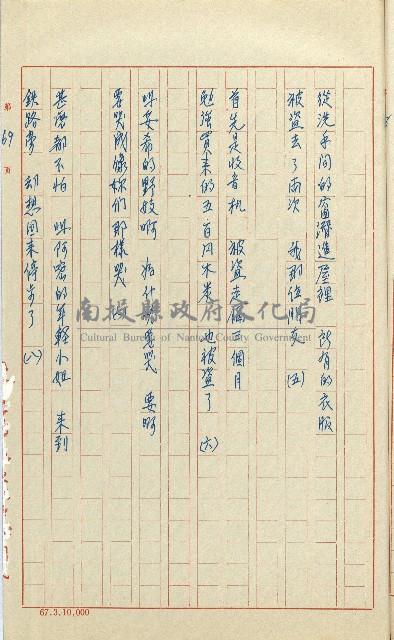 從洗手間的窗潛進屋裡 所有的衣服
被盜去了兩次 我那位朋友 (五)
首先是收音机 被盜走 個月
勉強買來的五百円水 也被盜了 (六)
叫 希的野妓啊 為什 哭 要啊
要哭 像妳們那樣哭
甚麼都不怕 叫阿 的年輕小姐 來到
鉄路旁 却想回來停步了 (八)
第 69 頁
南投縣政府文化局
Cultural Bureau of Nantou County Government
67.3.10,000